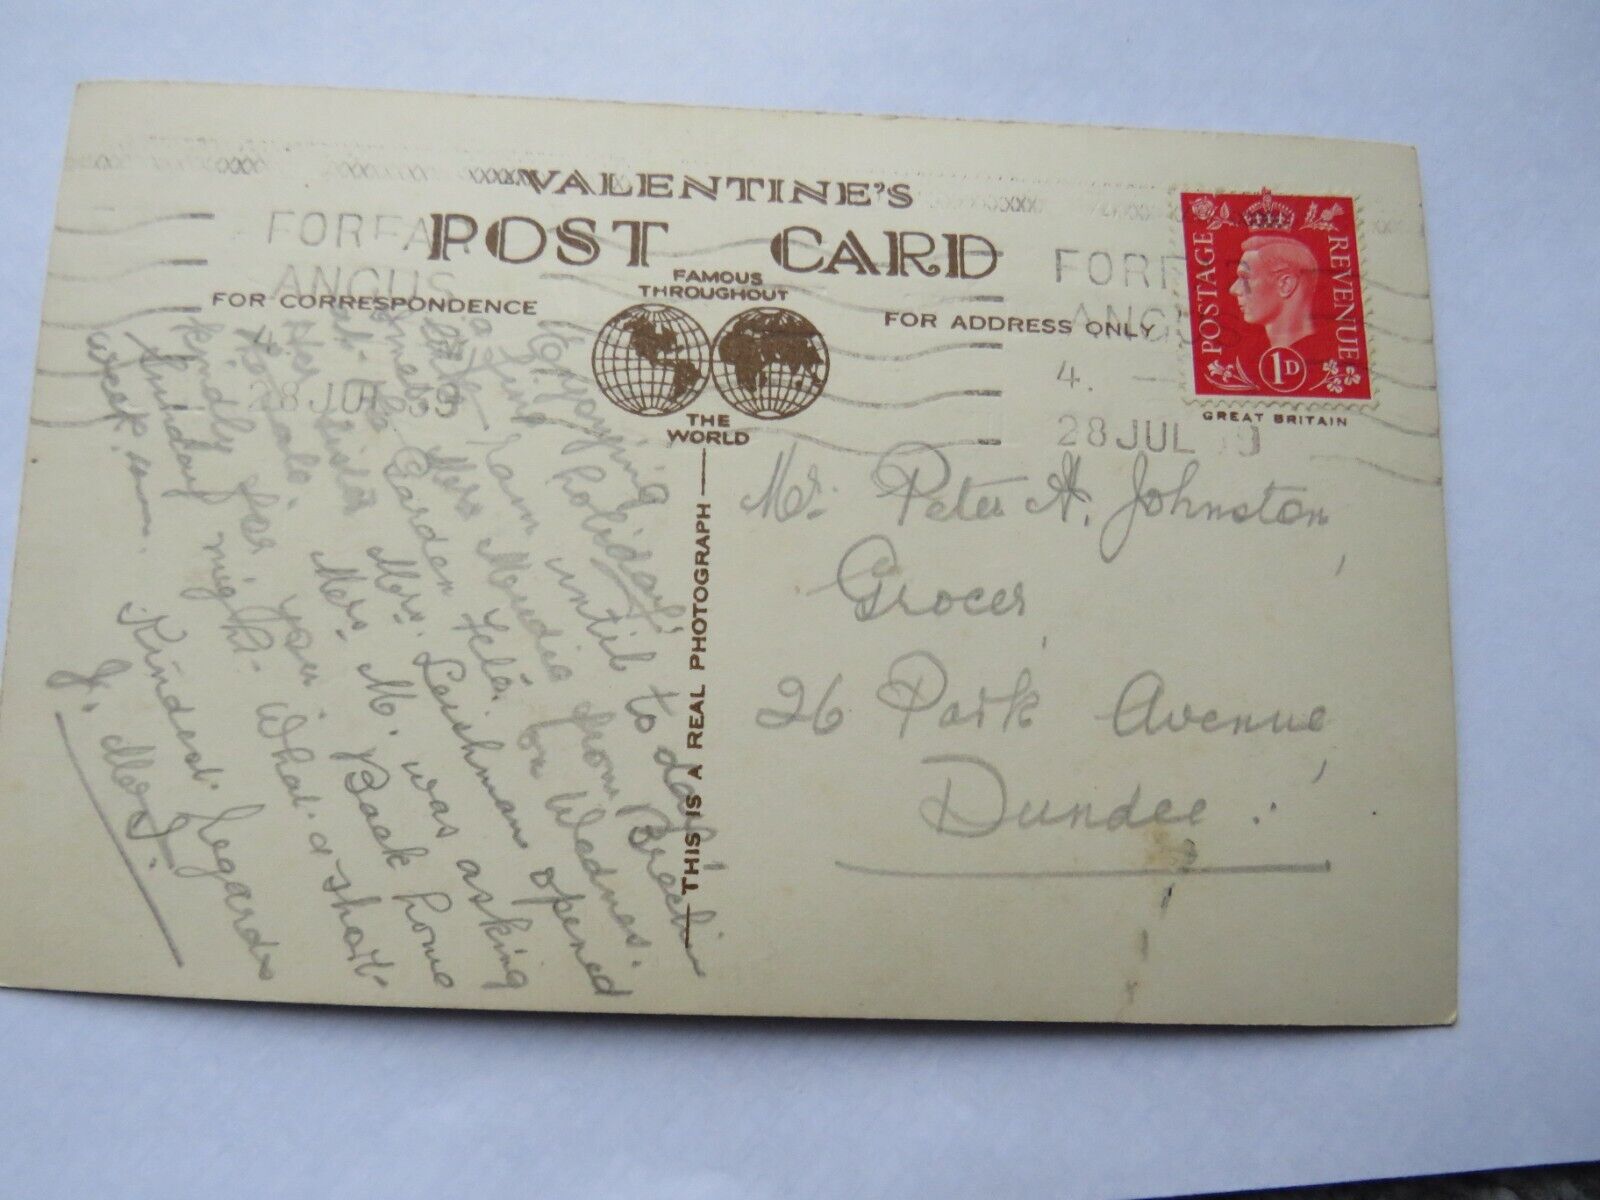 VALENTINE'S
POST CARD
FAMOUS THROUGHOUT
THE WORLD
FOR CORRESPONDENCE
FOR ADDRESS ONLY
FORFAR
ANGUS
28 JUL 39
FORF
ANGUS
4.
28 JUL 39
POSTAGE
REVENUE
1D
GREAT BRITAIN
THIS IS A REAL PHOTOGRAPH
Enjoying
a fine holiday.
rain until to day.
Mrs Mudie from Brechin
at the Garden Fete on Wednes.
Her sister Mrs. Leishman opened
Mrs. M. was asking
kindly for you. Back home
Sunday night. What a short
week.
Kindest Regards
J.
Mr. Peter A. Johnston,
Grocer,
26 Park Avenue,
Dundee.